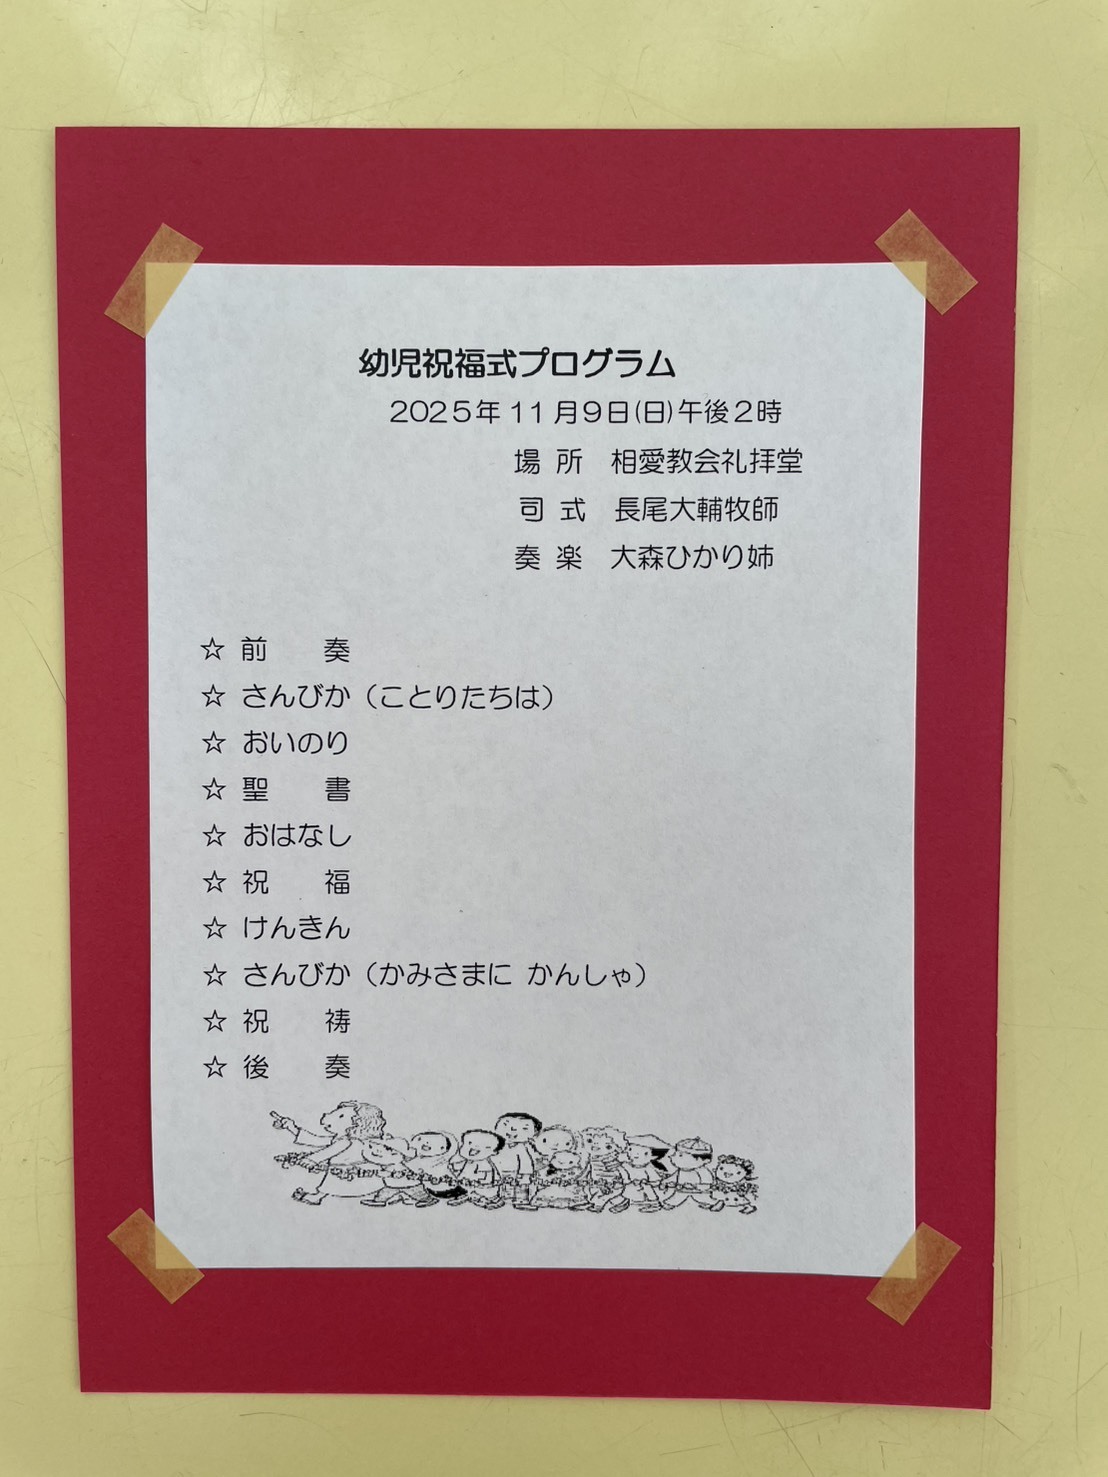 幼児祝福式プログラム
2025年11月9日(日)午後2時
場 所　相愛教会礼拝堂
司 式　長尾大輔牧師
奏 楽　大森ひかり姉
☆ 前　　奏
☆ さんびか（ことりたちは）
☆ おいのり
☆ 聖　　書
☆ おはなし
☆ 祝　　福
☆ けんきん
☆ さんびか（かみさまに かんしゃ）
☆ 祝　　祷
☆ 後　　奏